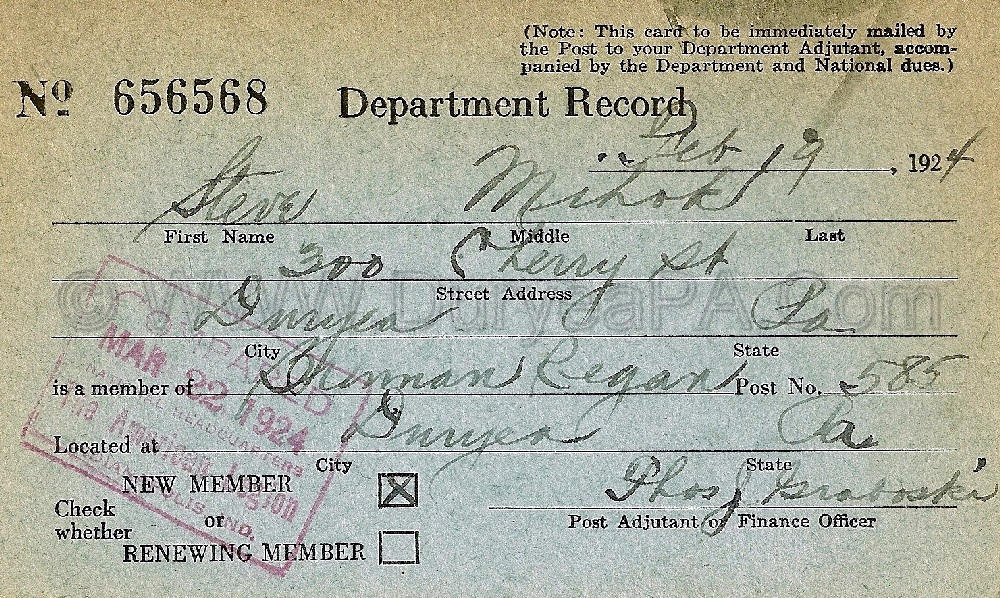 (Note: This card to be immediately mailed by
the Post to your Department Adjutant, accom-
panied by the Department and National dues.)
No 656568 Department Record
Feb 19, 1924
Steve Mihok
First Name Middle Last
300 Cherry St
Street Address
© www.DuryeaPA.com
Duryea Pa
City State
is a member of Brennan Regan Post No. 585
Located at Duryea Pa
City State
NEW MEMBER
Check
whether
or
RENEWING MEMBER
Thos J Graboski
Post Adjutant or Finance Officer
COMPARED
MAR 22 1924
NATIONAL HEADQUARTERS
The American Legion
INDIANAPOLIS IND.